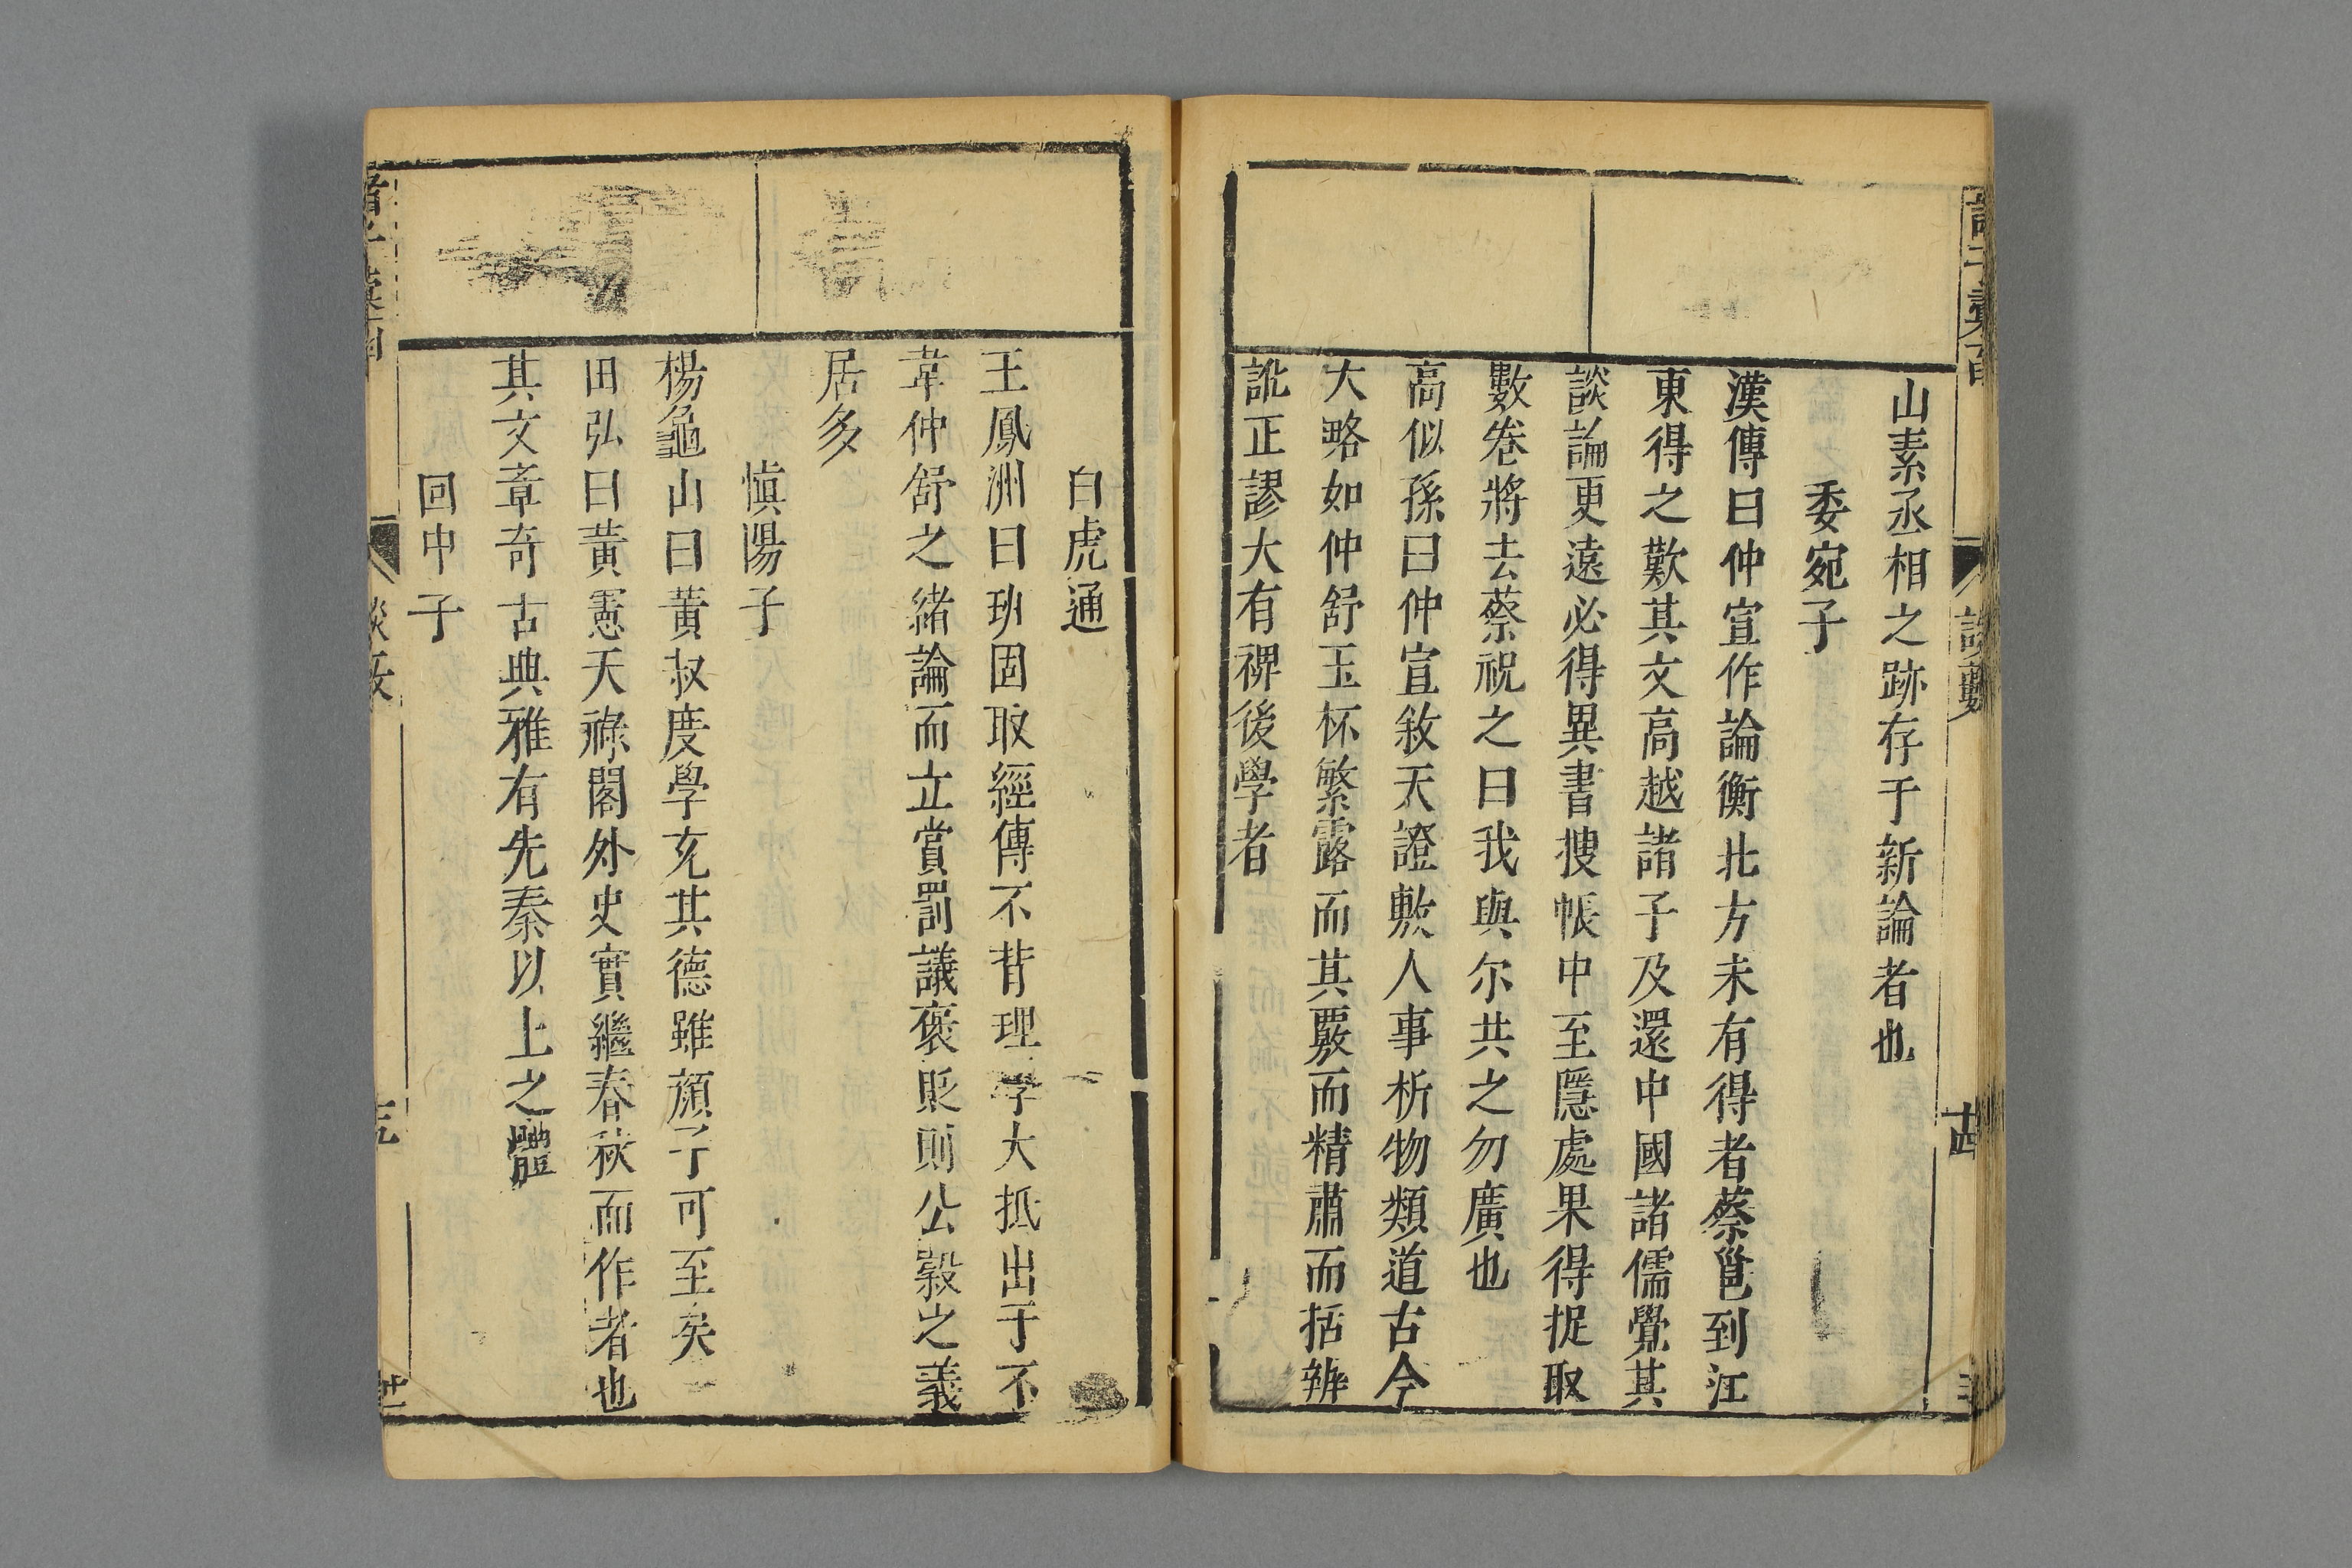 山素丞相之跡存于新論者也
委宛子
漢傳曰仲宣作論衡北方未有得者蔡邕到江
東得之歎其文高越諸子及還中國諸儒覺其
談論更遠必得異書搜帳中至隱處果得捉取
數卷將去蔡祝之曰我與尔共之勿廣也
高似孫曰仲宣敘天證敷人事析物類道古今
大略如仲舒玉杯繁露而其覈而精肅而括辨
訛正謬大有裨後學者
白虎通
王鳳洲曰班固取經傳不背理學大抵出于不
韋仲舒之緒論而立賞罰議褒貶則公穀之義
居多
慎陽子
楊龜山曰黃叔度學充其德雖顔子可至矣
田弘曰黃憲天祿閣外史實繼春秋而作者也
其文章奇古典雅有先秦以上之體
回中子